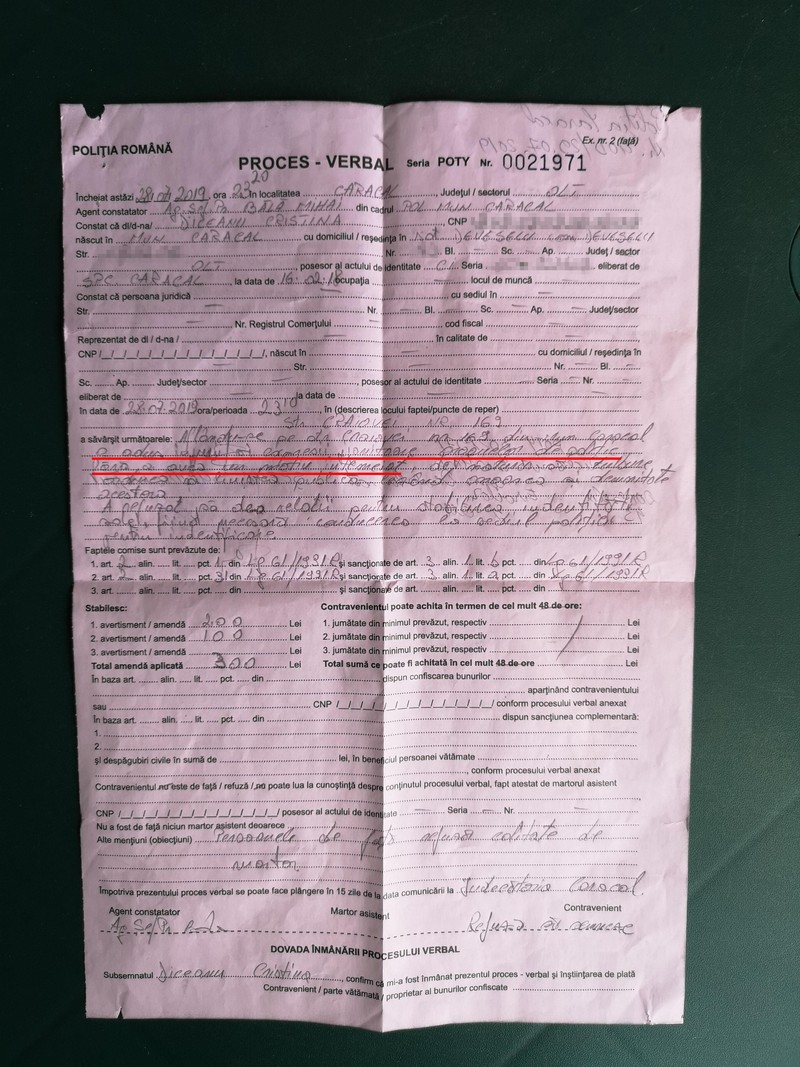 Ex. nr. 2 (față)
POLIȚIA ROMÂNĂ
PROCES - VERBAL Seria POTY Nr. 0021971
Încheiat astăzi 28.07.2019, ora 23 20 în localitatea CARACAL, Județul / sectorul OLT
Agent constatator Ag. Șef Pr. BALĂ MIHAI din cadrul POL MUN CARACAL
Constat că dl/d-na/ DICEANU CRISTINA CNP
născut în MUN CARACAL cu domiciliul / reședința în DEVESELU com DEVESELU
Str. Nr. Bl. Sc. Ap. Județ / sector
OLT, posesor al actului de identitate C.I. Seria eliberat de
SPC CARACAL la data de 16.02.16 ocupația — locul de muncă —
Constat că persoana juridică — cu sediul în —
Str. — Nr. Bl. Sc. Ap. Județ/sector
— Nr. Registrul Comerțului — cod fiscal —
Reprezentat de dl / d-na / — în calitate de —
CNP /_/_/_/_/_/_/_/_/_/_/_/_/_/, născut în — cu domiciliul / reședința în
— Str. — Nr. — Bl. —
Sc. — Ap. — Județ/sector —, posesor al actului de identitate — Seria — Nr. —
eliberat de — la data de —
în data de 28.07.2019 ora/perioada 23 10, în (descrierea locului faptei/puncte de reper)
Str. CRAIOVEI, NR. 169
a săvârșit următoarele: Aflându-se pe str. Craiovei nr. 169 din mun Caracal
a adus injurii
fără a avea un motiv întemeiat,
acestora
A refuzat să dea relații pentru stabilirea identității
sale, fiind necesară conducerea la sediul poliției
pentru identificare.
Faptele comise sunt prevăzute de:
1. art. 2 alin. lit. pct. 1 din Lp 61/1991R și sancționate de art. 3 alin. 1 lit. b pct. din Lp 61/1991R
2. art. 2 alin. lit. pct. 31 din Lp 61/1991R și sancționate de art. 3 alin. 1 lit. a pct. din Lp 61/1991R
3. art. alin. lit. pct. din și sancționate de art. alin. lit. pct. din
Stabilesc: Contravenientul poate achita în termen de cel mult 48 de ore:
1. avertisment / amendă 200 Lei 1. jumătate din minimul prevăzut, respectiv Lei
2. avertisment / amendă 100 Lei 2. jumătate din minimul prevăzut, respectiv Lei
3. avertisment / amendă Lei 3. jumătate din minimul prevăzut, respectiv Lei
Total amendă aplicată 300 Lei Total sumă ce poate fi achitată în cel mult 48 de ore Lei
În baza art. alin. lit. pct. din dispun confiscarea bunurilor
aparținând contravenientului
sau CNP /_/_/_/_/_/_/_/_/_/_/_/_/_/ conform procesului verbal anexat
În baza art. alin. lit. pct. din dispun sancțiunea complementară:
1.
2.
și despăgubiri civile în sumă de lei, în beneficiul persoanei vătămate
, conform procesului verbal anexat
Contravenientul nu este de față / refuză / nu poate lua la cunoștință despre conținutul procesului verbal, fapt atestat de martorul asistent
CNP /_/_/_/_/_/_/_/_/_/_/_/_/_/ posesor al actului de identitate — Seria — Nr. —
Nu a fost de față niciun martor asistent deoarece
Alte mențiuni (obiecțiuni) Persoanele de față refuză calitate de
martor
Împotriva prezentului proces verbal se poate face plângere în 15 zile de la data comunicării la Judecătoria Caracal
Agent constatator Martor asistent Contravenient
Ag Șef Pr. Refuză să semneze
DOVADA ÎNMÂNĂRII PROCESULUI VERBAL
Subsemnatul Diceanu Cristina, confirm că mi-a fost înmânat prezentul proces - verbal și înștiințarea de plată
Contravenient / parte vătămată / proprietar al bunurilor confiscate